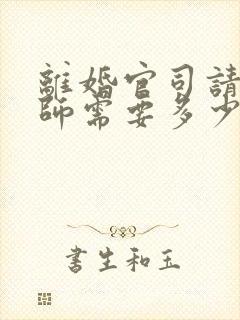 離婚官司請
師需要多少
書生和玉